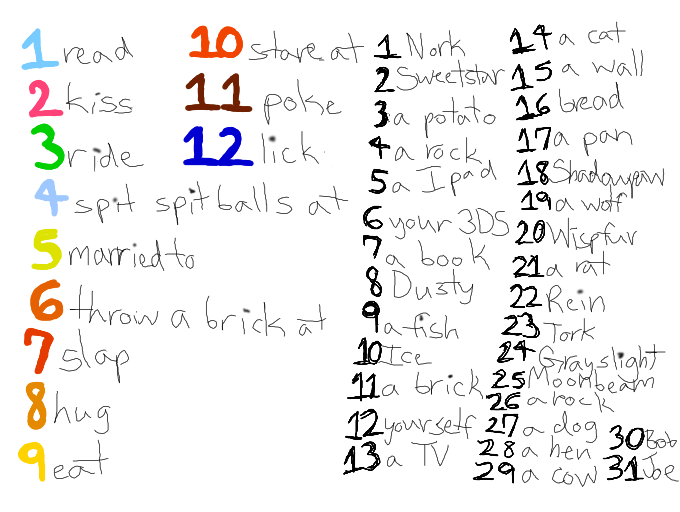 1 read
2 kiss
3 ride
4 spit spit balls at
5 married to
6 throw a brick at
7 slap
8 hug
9 eat
10 stare at
11 poke
12 lick
1 Nork
2 Sweetstar
3 a potato
4 a rock
5 a Ipad
6 your 3DS
7 a book
8 Dusty
9 a fish
10 Ice
11 a brick
12 yourself
13 a TV
14 a cat
15 a wall
16 bread
17 a pan
18 Shadowpaw
19 a wolf
20 Wispfur
21 a rat
22 Rein
23 Tork
24 Grayslight
25 Moonbeam
26 a rock
27 a dog
28 a hen
29 a cow
30 Bob
31 Joe